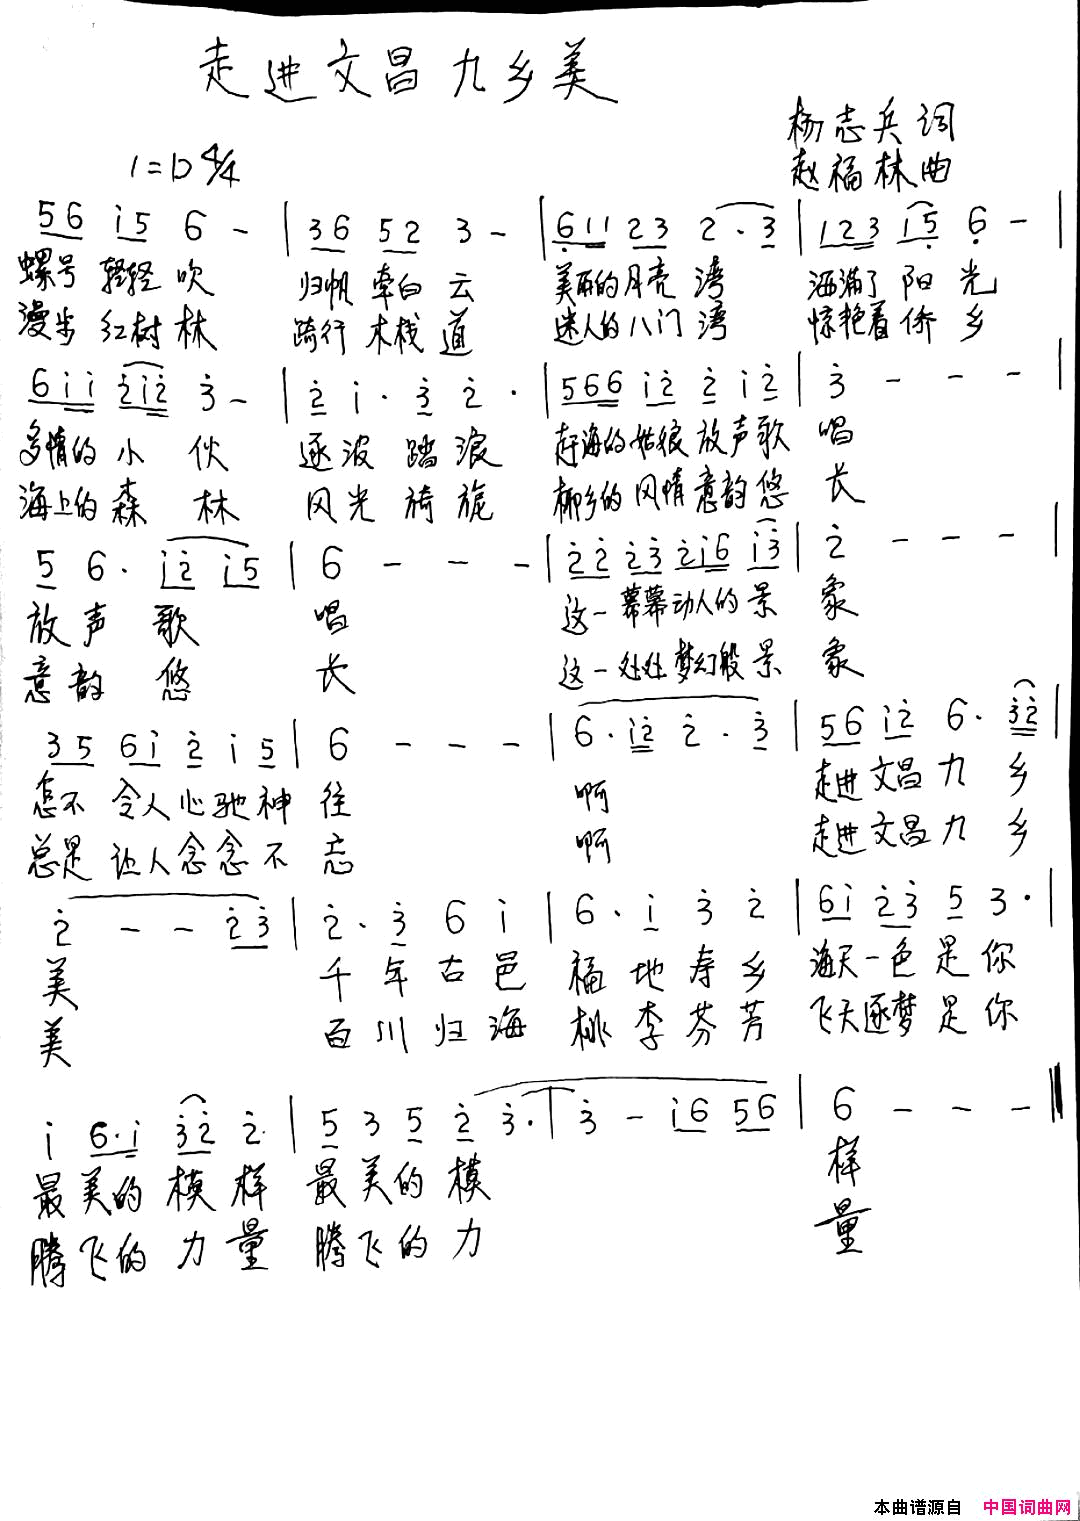 走进文昌九乡美
杨志兵词
1=D 4/4
赵福林曲
56 i5 6 - | 36 52 3 - | 611 23 2·3 | 123 i5 6 - |
螺号轻轻吹 归帆牵白云 美丽的月亮湾 洒满了阳光
漫步红树林 踏行木栈道 迷人的八门湾 惊艳着侨乡
6ii 2i2 3 - | 2 i· 3 2· | 566 i2 2 i2 | 3 - - - |
多情的小伙 逐波踏浪 赶海的姑娘放声歌唱
海上的森林 风光旖旎 椰乡的风情意韵悠长
5 6· i2 i5 | 6 - - - | 22 23 2i6 i3 | 2 - - - |
放声歌唱 这一幕幕动人的景象
意韵悠长 这一处处梦幻般景象
35 6i 2 i 5 | 6 - - - | 6·i2 2·3 | 56 i2 6· 32 |
怎不令人心驰神往 啊 走进文昌九乡
总是让人念念不忘 啊 走进文昌九乡
2 - - 23 | 2·3 6 i | 6·i 3 2 | 6i 23 5 3· |
美 千年古邑 福地寿乡 海天一色是你
美 百川归海 桃李芬芳 飞天逐梦是你
i 6·i 32 2· | 5 3 5 2 3· | 3 - i6 56 | 6 - - - ‖
最美的模样 最美的模 样
腾飞的力量 腾飞的力 量
本曲谱源自 中国词曲网